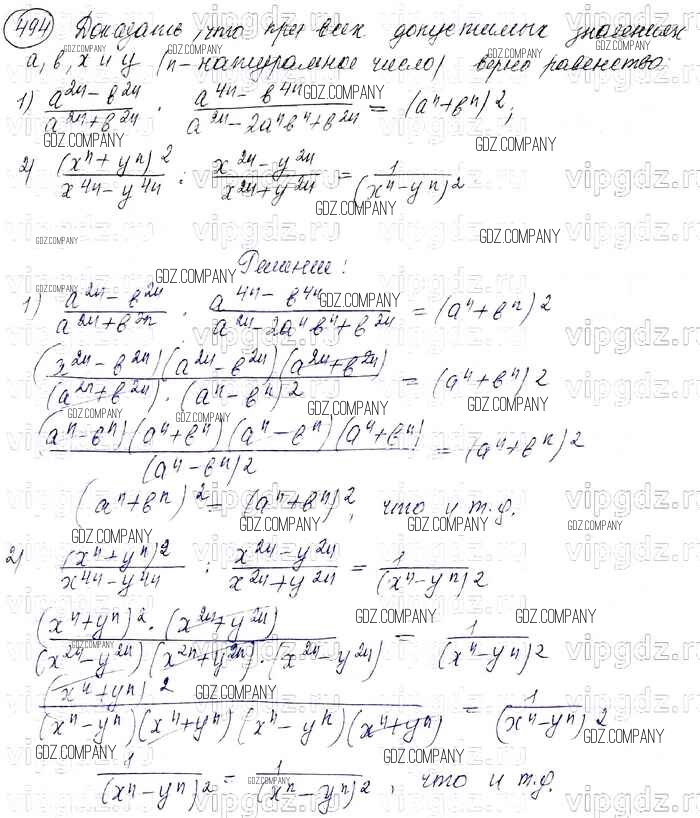 494 Доказать, что при всех допустимых значениях
а, в, х и у (n - натуральное число) верно равенство
1) (a^2n - в^2n)/(a^2n + в^2n) · (a^4n - в^4n)/(a^2n - 2a^n в^n + в^2n) = (a^n + в^n)^2;
2) (x^n + y^n)^2/(x^4n - y^4n) : (x^2n - y^2n)/(x^2n + y^2n) = 1/(x^n - y^n)^2
Решение:
1) (a^2n - в^2n)/(a^2n + в^2n) · (a^4n - в^4n)/(a^2n - 2a^n в^n + в^2n) = (a^n + в^n)^2
(x^2n - в^2n)(a^2n - в^2n)(a^2n + в^2n)/((a^2n + в^2n) · (a^n - в^n)^2) = (a^n + в^n)^2
(a^n - в^n)(a^n + в^n)(a^n - в^n)(a^n + в^n)/(a^n - в^n)^2 = (a^n + в^n)^2
(a^n + в^n)^2 = (a^n + в^n)^2, что и т.д.
2) (x^n + y^n)^2/(x^4n - y^4n) : (x^2n - y^2n)/(x^2n + y^2n) = 1/(x^n - y^n)^2
(x^n + y^n)^2 · (x^2n + y^2n)/((x^2n - y^2n)(x^2n + y^2n) · (x^2n - y^2n)) = 1/(x^n - y^n)^2
(x^n + y^n)^2/((x^n - y^n)(x^n + y^n)(x^n - y^n)(x^n + y^n)) = 1/(x^n - y^n)^2
1/(x^n - y^n)^2 = 1/(x^n - y^n)^2, что и т.д.
GDZ.COMPANY
vipgdz.ru